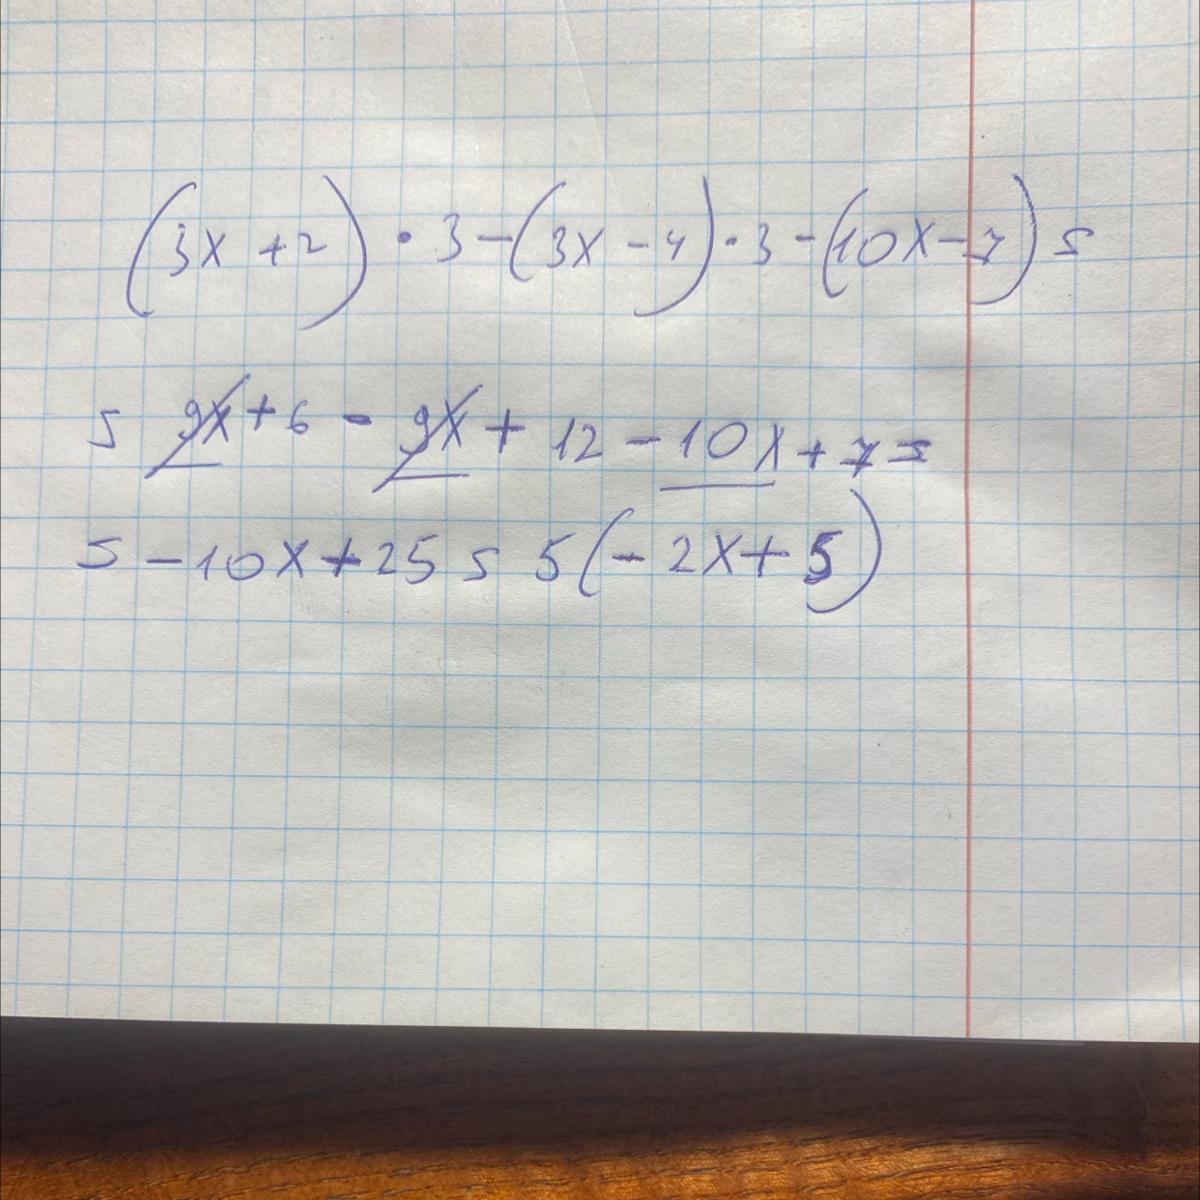 (3x+2)·3-(3x-4)·3-(10x-7)=
=9x+6-9x+12-10x+7=
=-10x+25=5(-2x+5)